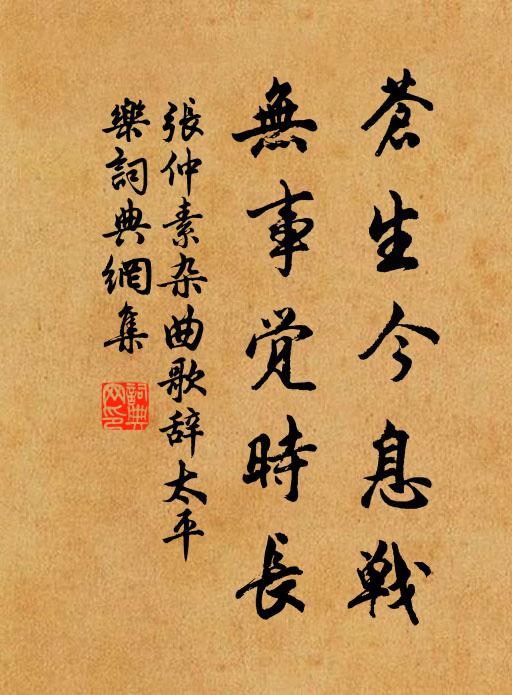 蒼生今息戦
無事覚時長
張仲素杂曲歌辞太平
樂詞典網集
詞典网印